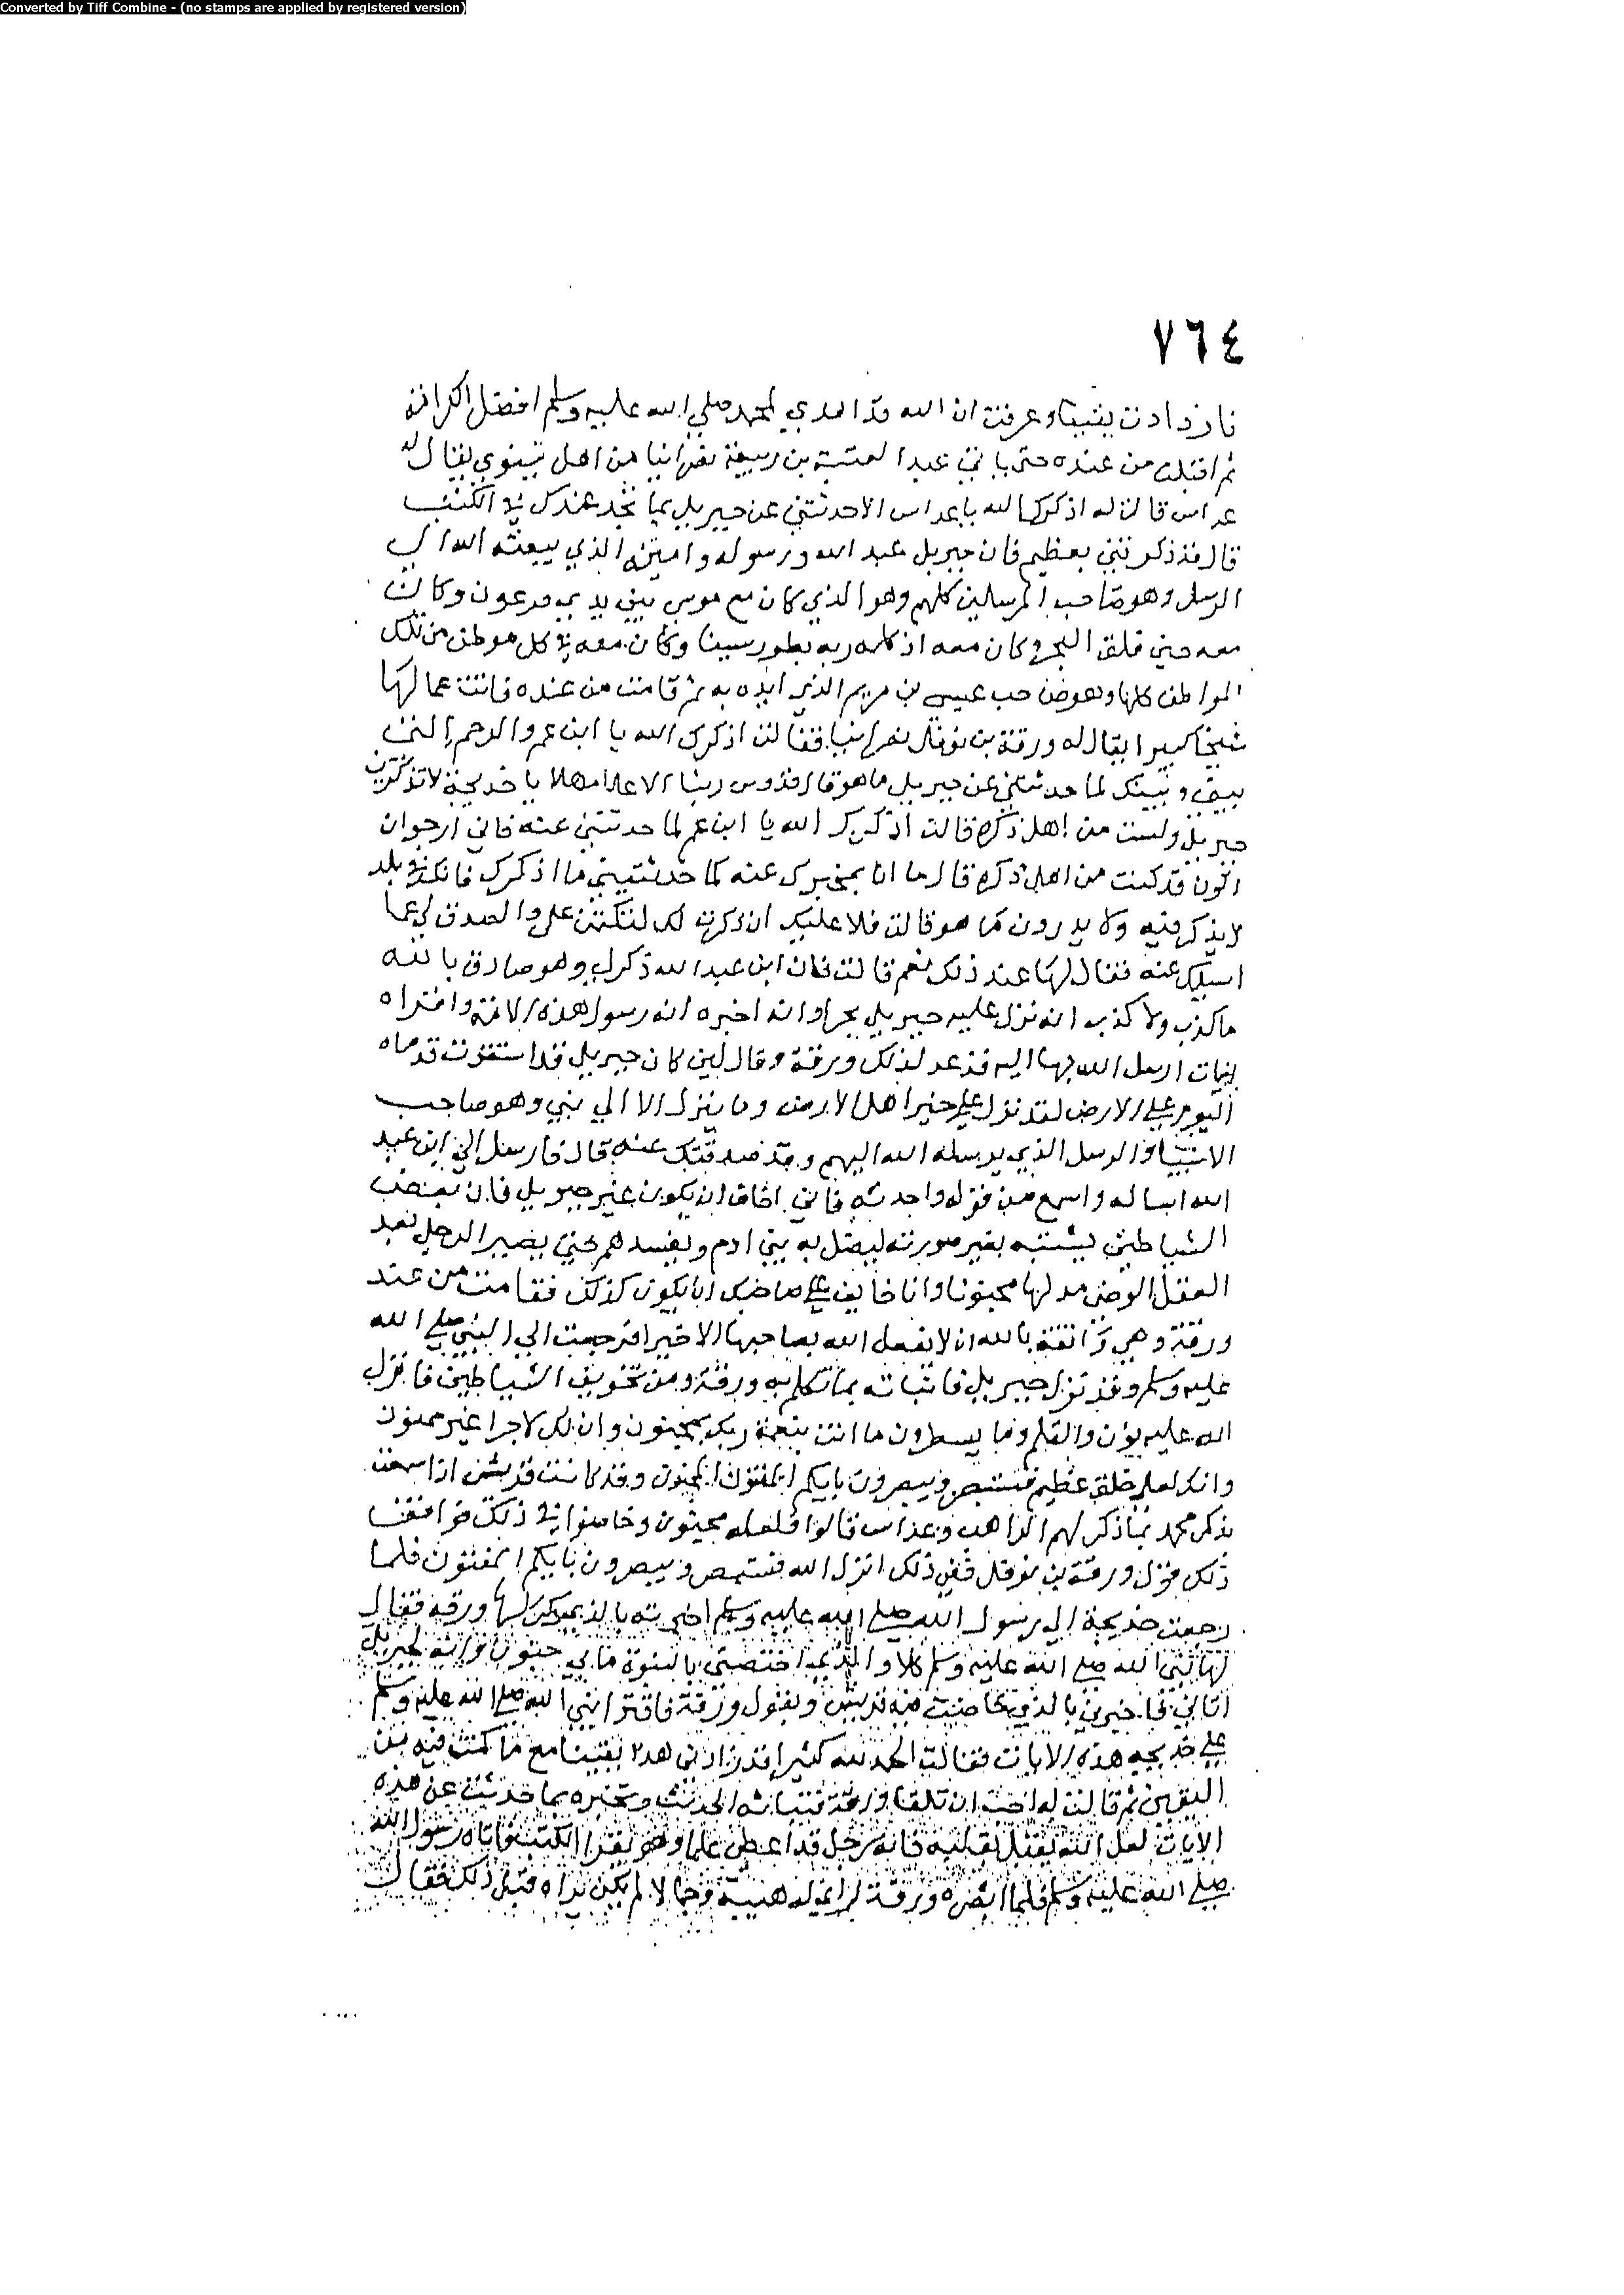 Converted by Tiff Combine - (no stamps are applied by registered version)
٧٦٤
فازدادت يقينا وعرفت ان الله قد اهدي لمحمد صلي الله عليه وسلم افضل الكرامة
ثم اقبلت من عنده حتى تاتي عبدا لعتبة بن ربيعة نصرانيا من اهل نينوي يقال له
عداس قالت له اذكرك الله يا عداس الا حدثتني عن جبريل بما تجد عندك في الكتب
قال قد ذكرتني بعظيم فان جبريل عبد الله ورسوله وامينه الذي يبعثه الله الي
الرسل وهو صاحب المرسلين كلهم وهو الذي كان مع موسي بين يدي فرعون وكان
معه حين فلق البحر وكان معه اذ كلمه ربه بطور سينا وكان معه في كل موطن من تلك
المواطن كلها وهو صاحب عيسي بن مريم الذي ايده به ثم قامت من عنده فاتت عما لها
شيخا كبيرا يقال له ورقة بن نوفل نصرانيا فقالت اذكرك الله يا ابن عم والرحم التي
بيني وبينك لما حدثتني عن جبريل ما هو قال قدوس ربنا الاعلا مهلا يا خديجة لا تذكرين
جبريل ولست من اهل ذكره قالت اذكرك الله يا ابن عم لما حدثتني عنه فاني ارجو ان
اكون قد كنت من اهل ذكره قال ما انا بمخبرك عنه لما حدثتيني ما اذكرك فانك في بلد
لا يذكر فيه ولا يدرون ما هو قالت فلا عليك ان ذكرت لك لتكتمن علي والصدق لي عما
اسيلك عنه فقال لها عند ذلك نعم قالت فان ابن عبد الله ذكر لي وهو صادق بالله
ما كذب ولا كذب انه نزل عليه جبريل بحرا وانه اخبره انه رسول هذه الامة واقراه
ايات ارسل الله بها اليه فذعر لذلك ورقة وقال لين كان جبريل قد استقرت قدماه
اليوم علي الارض لقد نزل علي خير اهل الارض وما ينزل الا الي نبي وهو صاحب
الانبيا والرسل الذي يرسله الله اليهم وقد صدقتك عنه قال فارسل الي ابن عبد
الله اساله واسمع من قوله واحدثه فاني اخاف ان يكون غير جبريل فان بعض
الشياطين يشتبه بغير صورته ليضل به بني ادم ويفسدهم حتي يصير الرجل بعد
العقل الرضي مدلها مجنونا وانا خايف علي صاحبك ان يكون كذلك فقامت من عند
ورقة وهي واثقة بالله ان لا يفعل الله بصاحبها الا خيرا فرجعت الي النبي صلي الله
عليه وسلم وقد نزل جبريل فانباته بما تكلم به ورقة ومن تخويف الشياطين فانزل
الله عليه ن والقلم وما يسطرون ما انت بنعمة ربك بمجنون وان لك لاجرا غير ممنون
وانك لعلي خلق عظيم فستبصر ويبصرون باييكم المفتون المجنون وقد كانت قريش اذا سمعت
بذكر محمد بما ذكر لهم الراهب وعداس قالوا فلعله مجنون وخاضوا في ذلك فوافقت
ذلك قول ورقة بن نوفل ففي ذلك انزل الله فستبصر ويبصرون باييكم المفتون فلما
رجعت خديجة الي رسول الله صلي الله عليه وسلم اخبرته بالذي ذكر لها ورقه فقال
لها نبي الله صلي الله عليه وسلم كلا والذي اختصني بالنبوة ما بي جنون وانه لجبريل
اتاني فاخبرني بالذي خاضت فيه قريش وبقول ورقة فاقترا نبي الله صلي الله عليه وسلم
علي خديجه هذه الايات فقالت الحمد لله كثيرا قد زادني هذا يقينا مع ما كنت فيه من
اليقين ثم قالت له احب ان تلقا ورقة فتباثه الحديث وتخبره بما حدثت عن هذه
الايات لعل الله يقبل بقلبه فانه رجل قد اعطي علما وهو يقرا الكتب فاتاه رسول الله
صلي الله عليه وسلم فلما ابصره ورقة راي له هيبة وجمالا لم يكن يراه قبل ذلك فقال